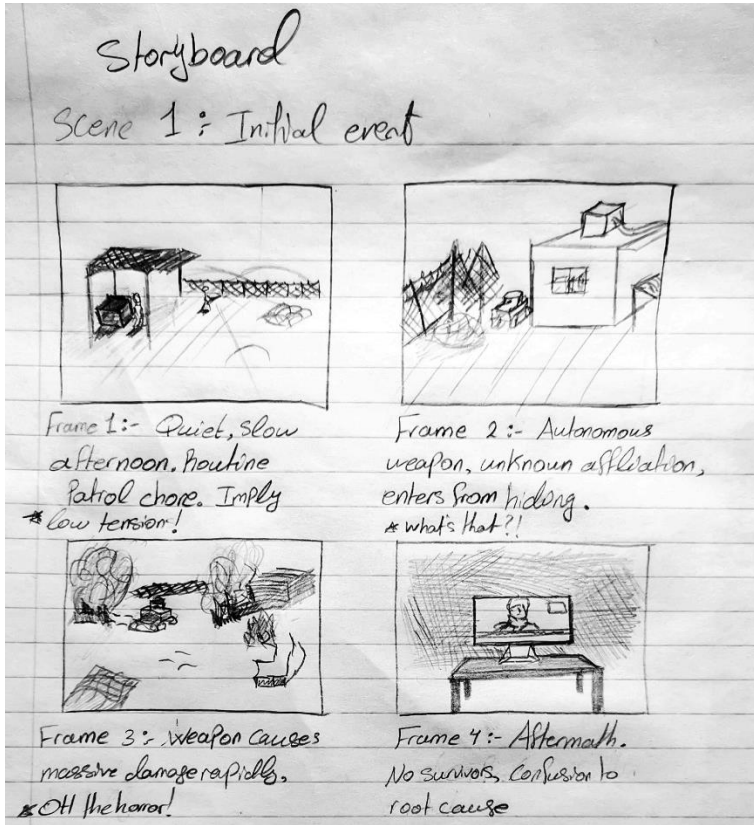 Storyboard
Scene 1:- Initial event
Frame 1:- Quiet, slow
afternoon. Routine
Patrol chore. Imply
* low tension!
Frame 2:- Autonomous
weapon, unknown affliation,
enters from hiding.
* what's that?!
Frame 3:- Weapon causes
massive damage rapidly.
* OH the horror!
Frame 4:- Aftermath.
No survivors, confusion to
root cause